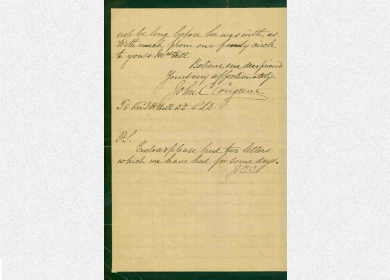 not be long before he was with us.
With much from our family circle
to yours & Mrs Hill
Believe me dear friend
Yours very affectionately
John C Congreve
To Revd Hill
P.S.
Enclosed please find two letters
which we have had for some days.
J.C.C